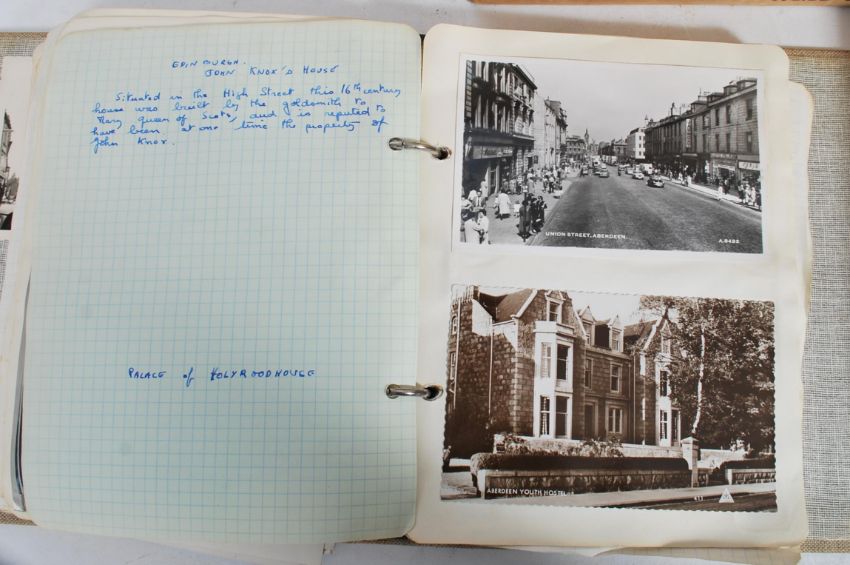 EDINBURGH.
JOHN KNOX'S HOUSE
Situated in the High Street this 16th century
house was built by the goldsmith to
Mary Queen of Scots, and is reputed to
have been at one time the property of
John Knox.
PALACE of HOLYROODHOUSE
UNION STREET, ABERDEEN.
ABERDEEN YOUTH HOSTEL